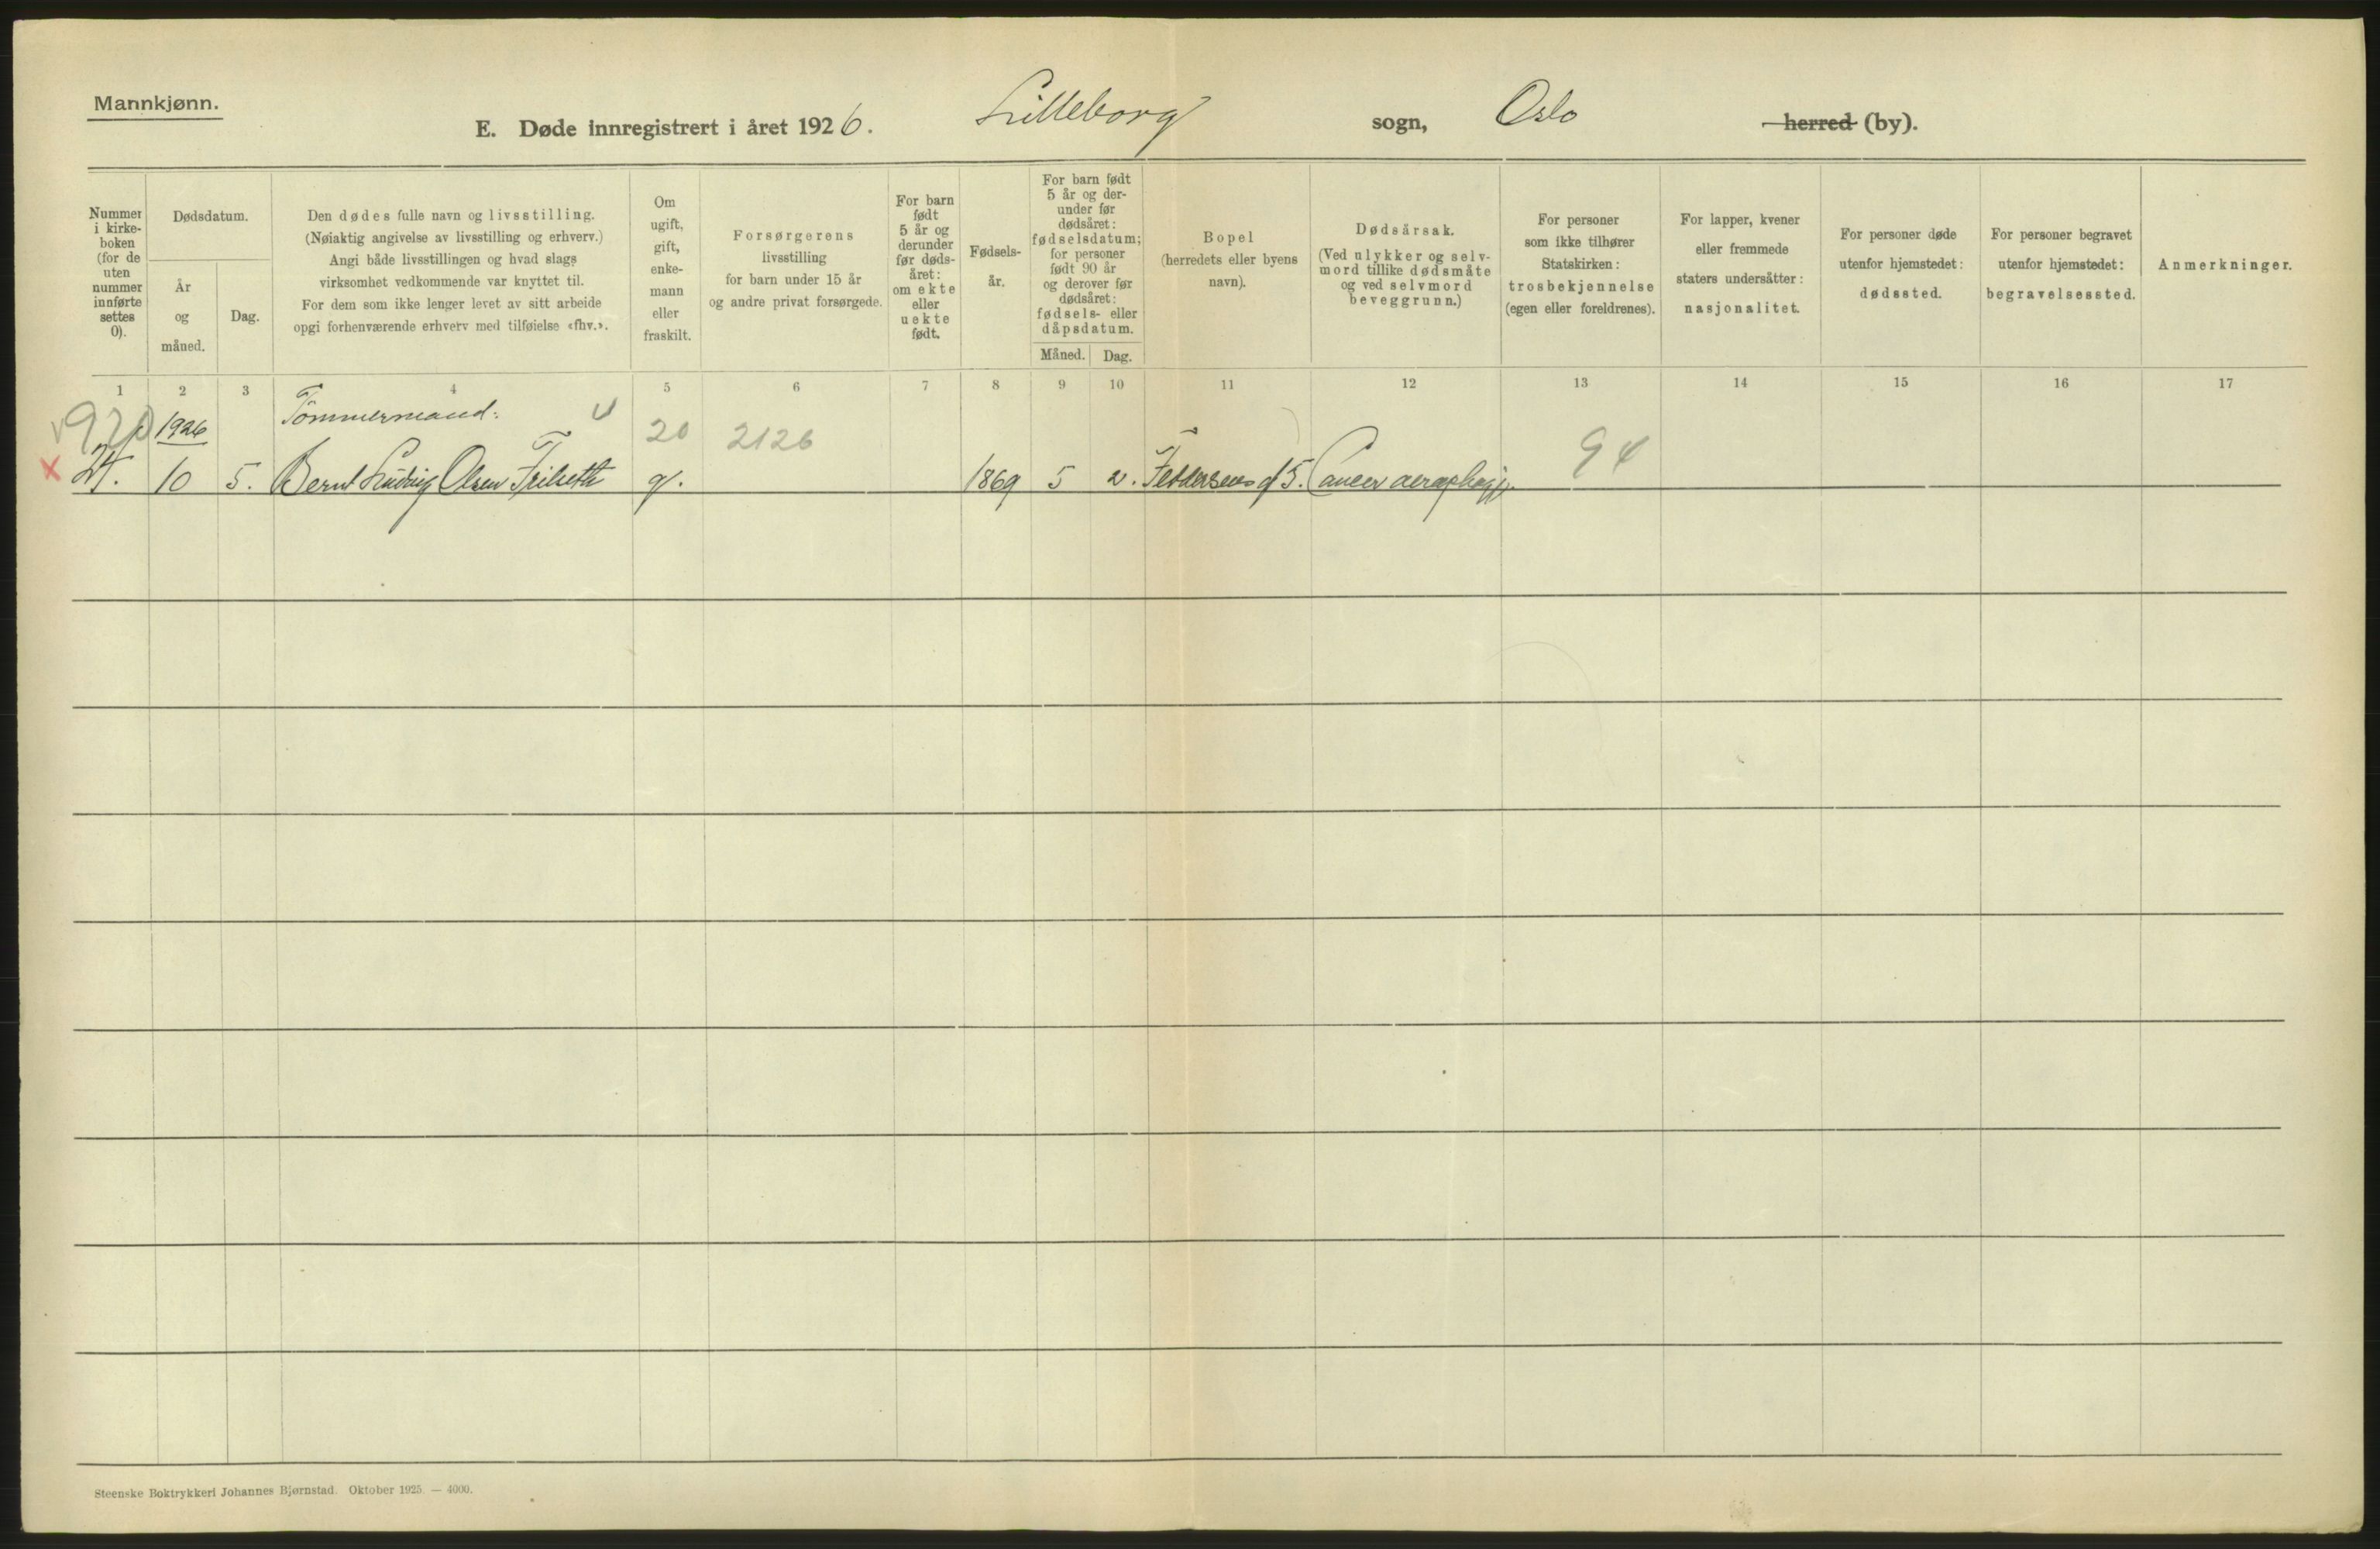 Mannkjønn.
E. Døde innregistrert i året 1926. Lilleborg sogn, Oslo herred (by).
Nummer i kirke-
boken
(for de
uten
nummer
innførte
settes
0).
Dødsdatum.
År
og
måned.
Dag.
Den dødes fulle navn og livsstilling.
(Nøiaktig angivelse av livsstilling og erhverv.)
Angi både livsstillingen og hvad slags
virksomhet vedkommende var knyttet til.
For dem som ikke lenger levet av sitt arbeide
opgi forhenværende erhverv med tilføielse «fhv.».
Om
ugift,
gift,
enke-
mann
eller
fraskilt.
Forsørgerens
livsstilling
for barn under 15 år
og andre privat forsørgede.
For barn
født
5 år og
derunder
før døds-
året:
om ekte
eller
uekte
født.
Fødsels-
år.
For barn født
5 år og der-
under før
dødsåret:
fødselsdatum;
for personer
født 90 år
og derover før
dødsåret:
fødsels- eller
dåpsdatum.
Måned. Dag.
Bopel
(herredets eller byens
navn).
Dødsårsak.
(Ved ulykker og selv-
mord tillike dødsmåte
og ved selvmord
beveggrunn.)
For personer
som ikke tilhører
Statskirken:
trosbekjennelse
(egen eller foreldrenes).
For lapper, kvener
eller fremmede
staters undersåtter:
nasjonalitet.
For personer døde
utenfor hjemstedet:
dødssted.
For personer begravet
utenfor hjemstedet:
begravelsessted.
Anmerkninger.
1 2 3 4 5 6 7 8 9 10 11 12 13 14 15 16 17
1926 Tömmermand: 20 2126 94
24. 10 5. Bernt Ludvig Olsen g. 1869 5 2. Feddersens g 5. Cancer
Steenske Boktrykkeri Johannes Bjørnstad. Oktober 1925. — 4000.